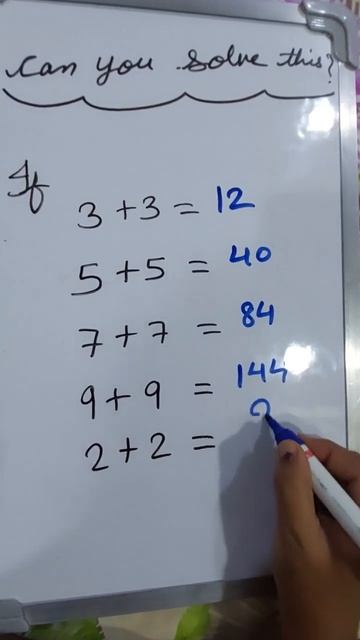 Can you solve this?
If
3 + 3 = 12
5 + 5 = 40
7 + 7 = 84
9 + 9 = 144
2 + 2 =